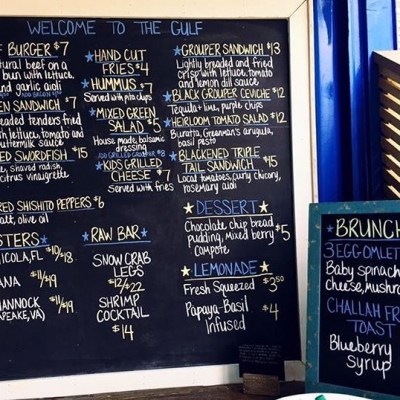 WELCOME TO THE GULF
BURGER $7
natural beef on a
bun with lettuce,
garlic aioli
SANDWICH $7
breaded tenders fried
with lettuce, tomato and
buttermilk sauce
SWORDFISH $15
shaved radish
citrus vinaigrette
SHISHITO PEPPERS $6
salt, olive oil
$10/18
$11/$19
$11/$19
HAND CUT
FRIES $4
HUMMUS $7
Served with pita chips
MIXED GREEN
SALAD $5
House made, balsamic
dressing
ADD GRILLED GROUPER $8
KIDS GRILLED
CHEESE $7
Served with fries
RAW BAR
SNOW CRAB
LEGS
$12/$22
SHRIMP
COCKTAIL
$14
GROUPER SANDWICH $13
Lightly breaded and fried
crisp with lettuce, tomato
and lemon dill sauce
BLACK GROUPER CEVICHE $12
Tequila + lime, purple chips
HEIRLOOM TOMATO SALAD $12
Burratta, Greenman's arugula,
basil pesto
BLACKENED TRIPLE
TAIL SANDWICH $15
Local tomatoes, curly chicory,
rosemary aioli
DESSERT
Chocolate chip bread
pudding, mixed berry $5
compote
LEMONADE
Fresh Squeezed $3.50
Papaya-Basil $4
Infused
BRUNCH
3 EGG OMLET
Baby spinach
cheese, mushro
CHALLAH FR
TOAST
Blueberry
syrup